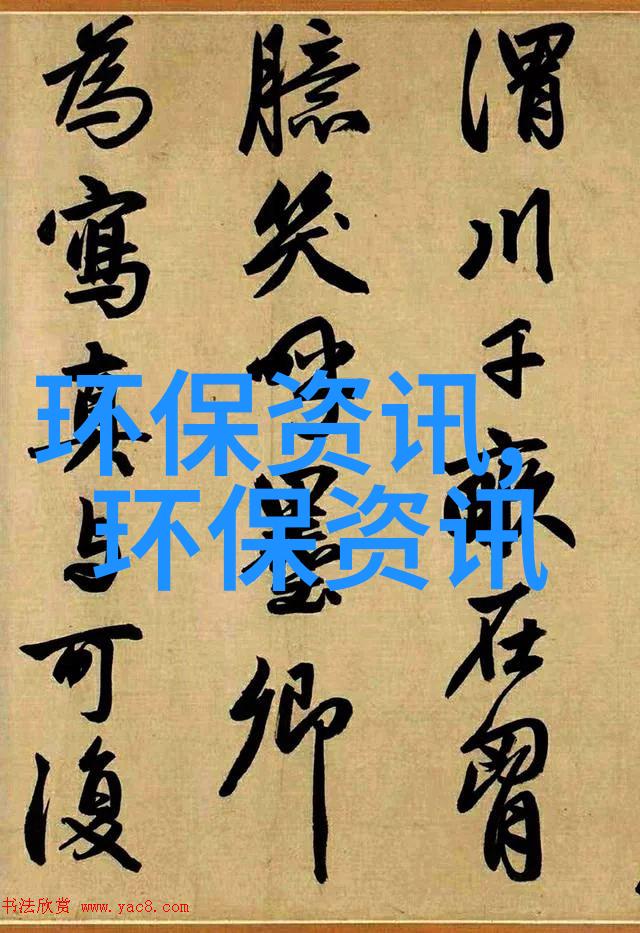 渭川千畝在胷
臆笑呼墨卿
為寫真与可復
环保资讯,
环保资讯
书法欣赏 www.yac8.com